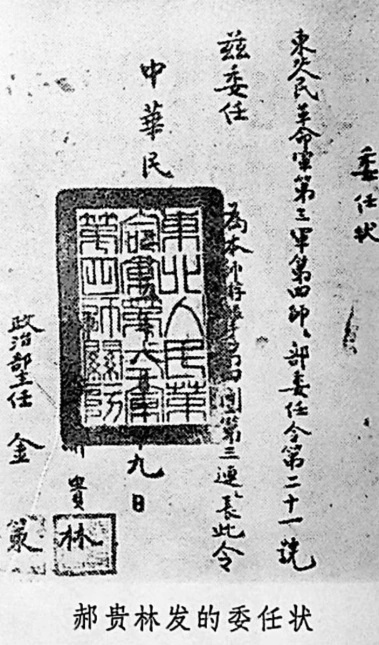 委任状
東北人民革命軍第三軍第四師、部委任令第二十一號
茲委任
為本師第四團第三連、長此令
中華民
九日
東北人民革
命軍第三軍
第四師關防
貴林
政治部主任 金策
郝贵林发的委任状